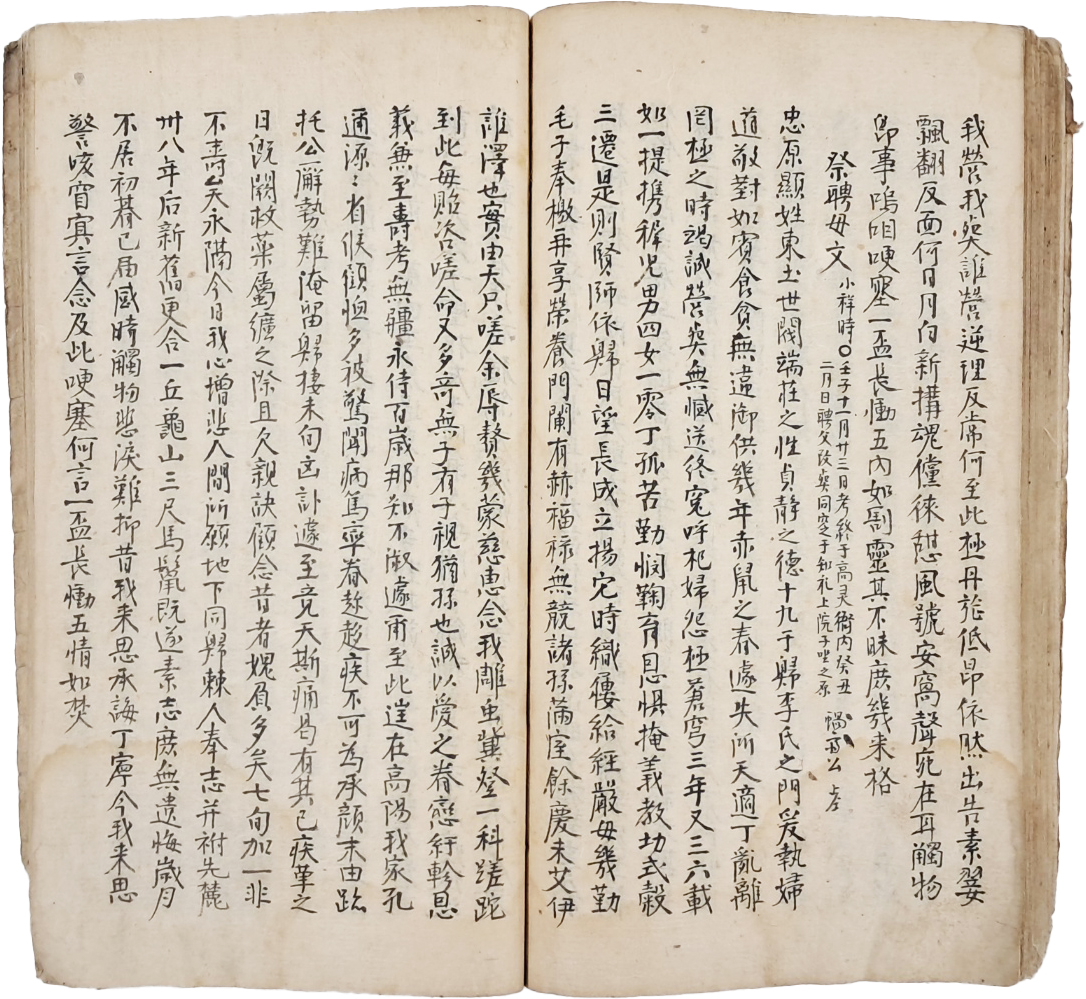 我營我奠誰營逆理反常何至此極丹旐低昂依然出告素翣
飄翻反面何日月向新搆魂儻徠憇風號安窩聲宛在耳觸物
卽事嗚咽哽塞一盃長慟五內如割靈其不昧庶幾来格
祭聘母文
小祥時○壬子十一月廿三日考終于高灵衙內癸丑
二月日聘父改葬同窆于知礼上院子坐之原
忠原顯姓東土世閥端莊之性貞靜之德十九于歸李氏之門爰執婦
道敬對如賓食貧無違御供幾年赤鼠之春遽失所天適丁亂離
罔極之時竭誠營奠無憾送終寃呼杞婦怨極蒼穹三年又三六載
如一提携穉兒男四女一零丁孤苦勤憫鞠育恩惧掩義教功式穀
三遷是則賢師依歸日望長成立揚它時織屨給經嚴母幾勤
毛子奉檄再享榮養門闌有赫福祿無競諸孫滿室餘慶未艾伊
誰澤也實由天只嗟余辱贅幾蒙慈惠念我雕虫冀登一科蹉跎
到此每貽咨嗟命又多奇無子有子視猶孫也誠以愛之眷戀紆軫恩
義無至壽考無疆永侍百歲那知不淑遽甫至此逞在高陽我家孔
邇源源省候顧恤多被驚聞病篤率眷趍趍疾不可為承顔末由跡
托公廨勢難淹留歸棲未旬凶訃遽至竟天斯痛曷有其已疾革之
日旣闕救藥屬纊之際且欠親訣顧念昔者媿負多矣七旬加一非
不壽矣永隔今日我心增悲人間所願地下同歸棘人奉志并祔先麓
卅八年后新舊更合一丘龜山三尺馬鬣旣遂素志庶無遺悔歲月
不居初朞已届感時觸物悲淚難抑昔我来思承誨丁寧今我来思
警咳窅冥言念及此哽塞何言一盃長慟五情如焚